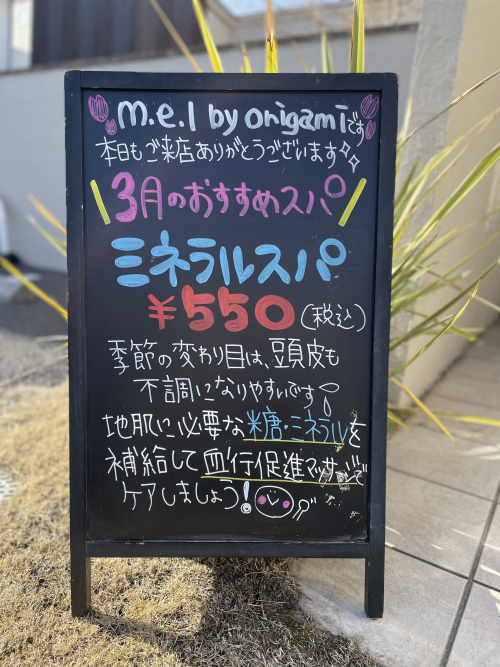 m.e.l by origamiです
本日もご来店ありがとうございます
3月のおすすめスパ
ミネラルスパ
¥550(税込)
季節の変わり目は、頭皮も
不調になりやすいです
地肌に必要な糖・ミネラルを
補給して血行促進マッサージで
ケアしましょう!